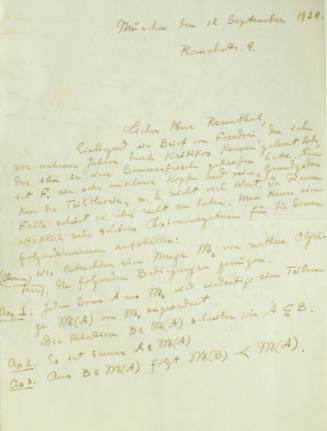 München den 12 September 1938.
Rauchstr. 9.
Lieber Herr Rosenthal,
Einliegend ein Brief von Foradori, den ich
vor mehreren Jahren durch Kritikos kennen gelernt habe,
der ihn in einer Sommerfrische getroffen hatte. Nun
ist F. ein sehr unklarer Kopf und seine
der Teiltheorie, m. E. nicht viel Wert. In diesem
Falle scheint er aber recht zu haben. Man kann ein
wirklich sehr schönes Axiomensystem für die
folgendermassen aufstellen:
Wir betrachten eine Menge M₀ von mathem. Objek-
ten, die folgenden Bedingungen genügen.
Ax 1. Jedem A aus M₀ wird eindeutig eine Teilmen-
ge M(A) von M₀ zugeordnet.
Die Relation B ∈ M(A) schreiben wir A ⊆ B.
Ax 2. Es ist immer A ∈ M(A)
Ax 3. Aus B ∈ M(A) folgt M(B) ≺ M(A).